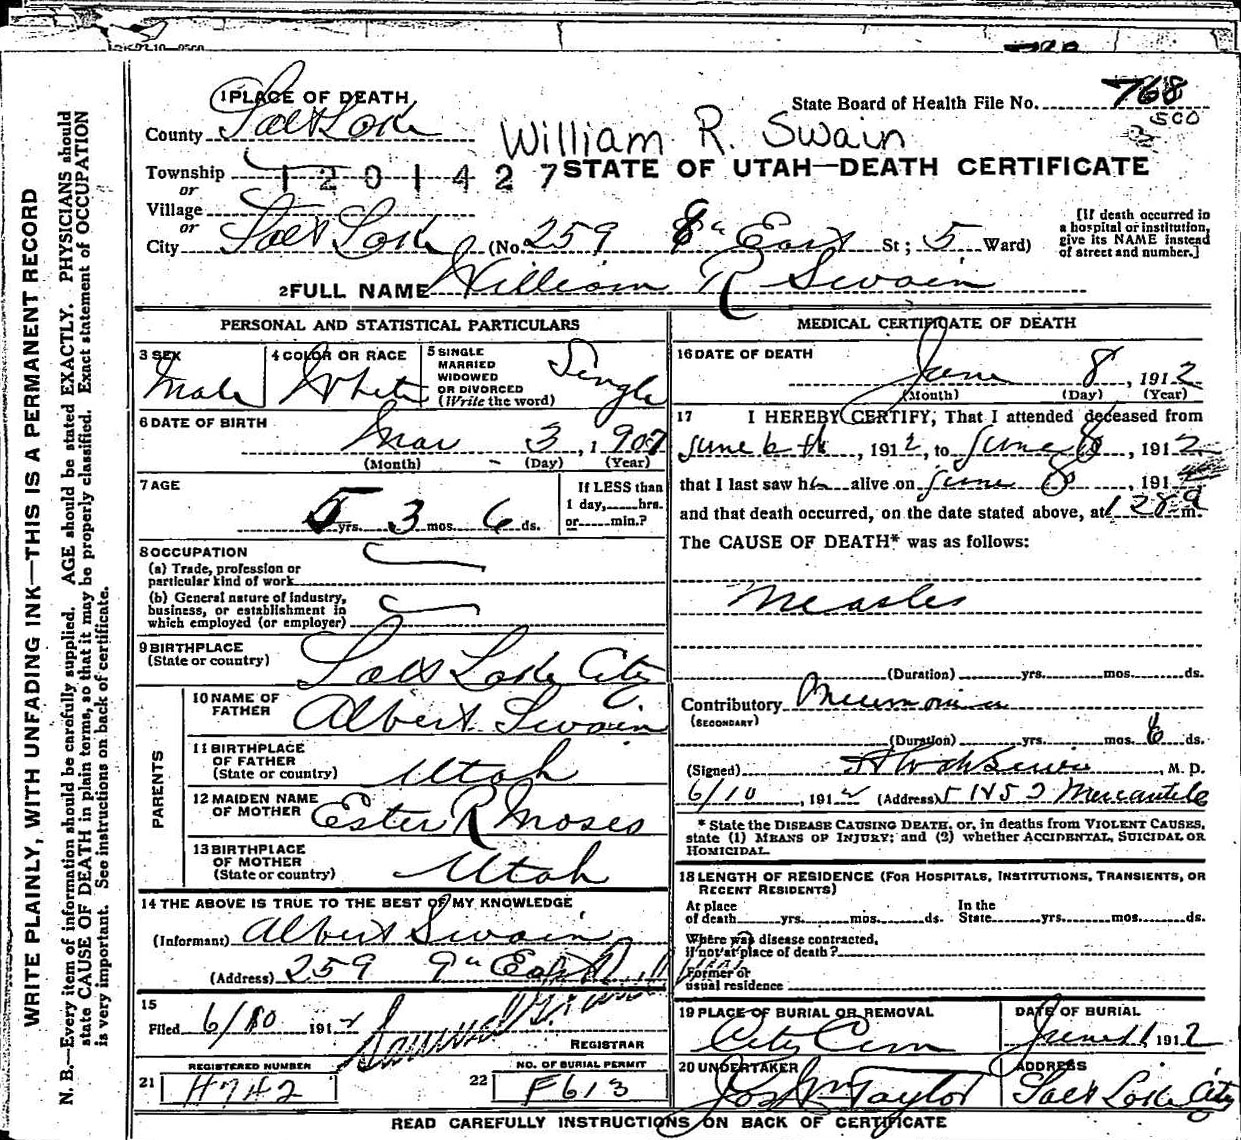 1 PLACE OF DEATH
State Board of Health File No. 768
County Salt Lake
500
William R. Swain
Township 1201427 STATE OF UTAH—DEATH CERTIFICATE
or
Village
or
City Salt Lake (No. 259 East St; 5 Ward)
[If death occurred in
a hospital or institution,
give its NAME instead
of street and number.]
2 FULL NAME William R Swain
PERSONAL AND STATISTICAL PARTICULARS
3 SEX
Male
4 COLOR OR RACE
White
5 SINGLE
MARRIED
WIDOWED
OR DIVORCED
(Write the word)
Single
6 DATE OF BIRTH
Mar 3, 1907
(Month) (Day) (Year)
7 AGE
5 yrs. 3 mos. 6 ds.
If LESS than
1 day, hrs.
or min.?
8 OCCUPATION
(a) Trade, profession or
particular kind of work
(b) General nature of industry,
business, or establishment in
which employed (or employer)
9 BIRTHPLACE
(State or country)
Salt Lake City
PARENTS
10 NAME OF
FATHER
Albert Swain
11 BIRTHPLACE
OF FATHER
(State or country)
Utah
12 MAIDEN NAME
OF MOTHER
Ester R Moses
13 BIRTHPLACE
OF MOTHER
(State or country)
Utah
14 THE ABOVE IS TRUE TO THE BEST OF MY KNOWLEDGE
(Informant) Albert Swain
(Address) 259 9" East
15
Filed 6/10 1912
REGISTRAR
REGISTERED NUMBER
21 H742
NO. OF BURIAL PERMIT
22 F613
MEDICAL CERTIFICATE OF DEATH
16 DATE OF DEATH
June 8, 1912
(Month) (Day) (Year)
17 I HEREBY CERTIFY, That I attended deceased from
June 6th, 1912, to June 8, 1912
that I last saw h alive on June 8, 191
and that death occurred, on the date stated above, at m.
The CAUSE OF DEATH* was as follows:
Measles
(Duration) yrs. mos. ds.
Contributory Pneumonia
(SECONDARY)
(Duration) yrs. mos. 6 ds.
(Signed) , M. D.
6/10, 1912 (Address) Mercantile
* State the DISEASE CAUSING DEATH, or, in deaths from VIOLENT CAUSES,
state (1) MEANS OF INJURY; and (2) whether ACCIDENTAL, SUICIDAL OR
HOMICIDAL.
18 LENGTH OF RESIDENCE (FOR HOSPITALS, INSTITUTIONS, TRANSIENTS, OR
RECENT RESIDENTS)
At place
of death yrs. mos. ds.
In the
State yrs. mos. ds.
Where was disease contracted,
if not at place of death?
Former or
usual residence
19 PLACE OF BURIAL OR REMOVAL
City Cem
DATE OF BURIAL
June 11, 1912
20 UNDERTAKER
Jos Wm Taylor
ADDRESS
Salt Lake City
READ CAREFULLY INSTRUCTIONS ON BACK OF CERTIFICATE
WRITE PLAINLY, WITH UNFADING INK—THIS IS A PERMANENT RECORD
N. B.—Every item of information should be carefully supplied. AGE should be stated EXACTLY. PHYSICIANS should
state CAUSE OF DEATH in plain terms, so that it may be properly classified. Exact statement of OCCUPATION
is very important. See instructions on back of certificate.